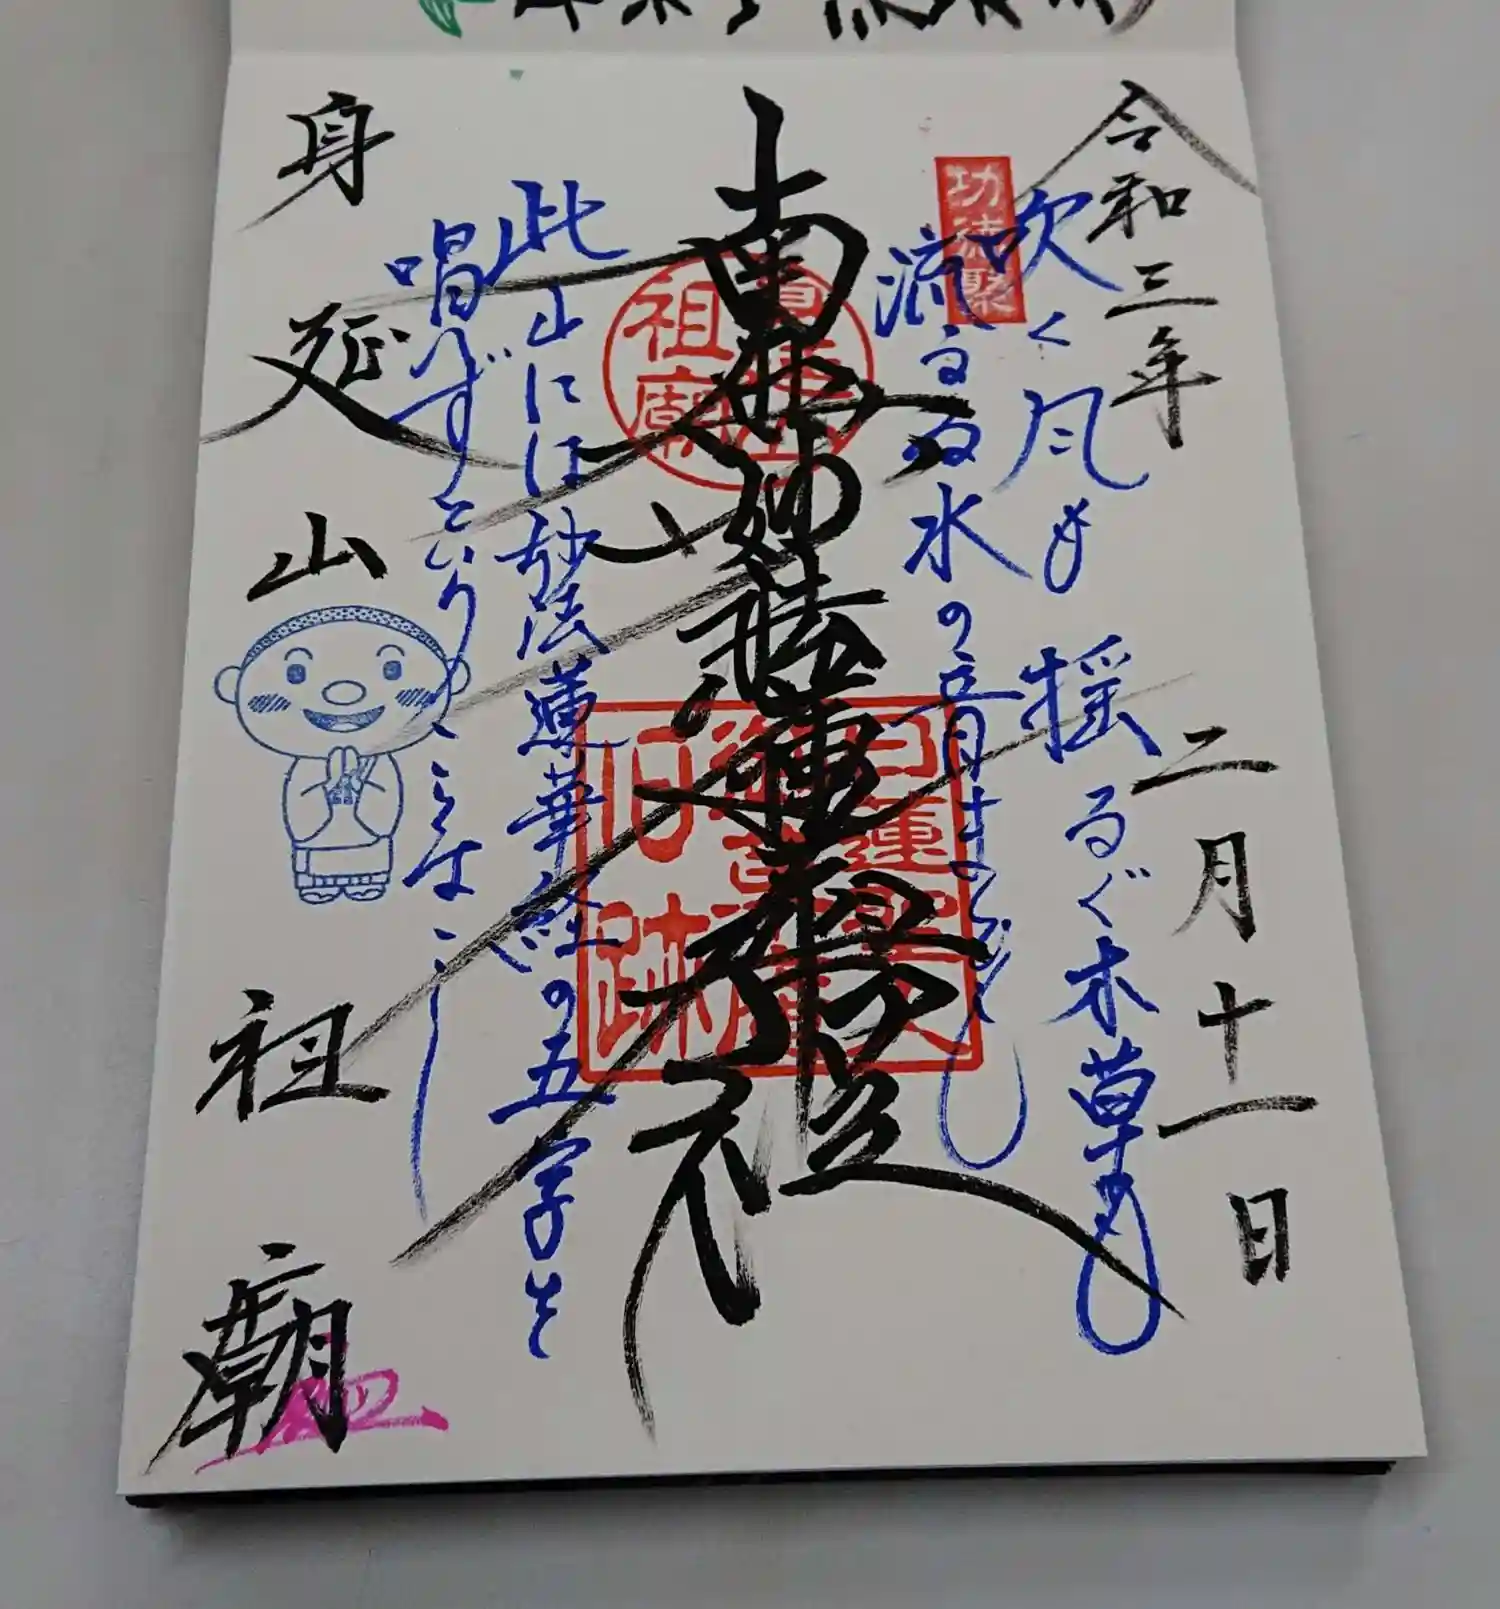 令和三年 二月十一日
功徳聚
吹く風も 揺るぐ木草も
流るる水の音まで
南無妙法蓮華経
此山には妙法蓮華経の五字を
唱へずと云うことなし
身延山 祖廟
祖廟
日蓮聖人
旧跡